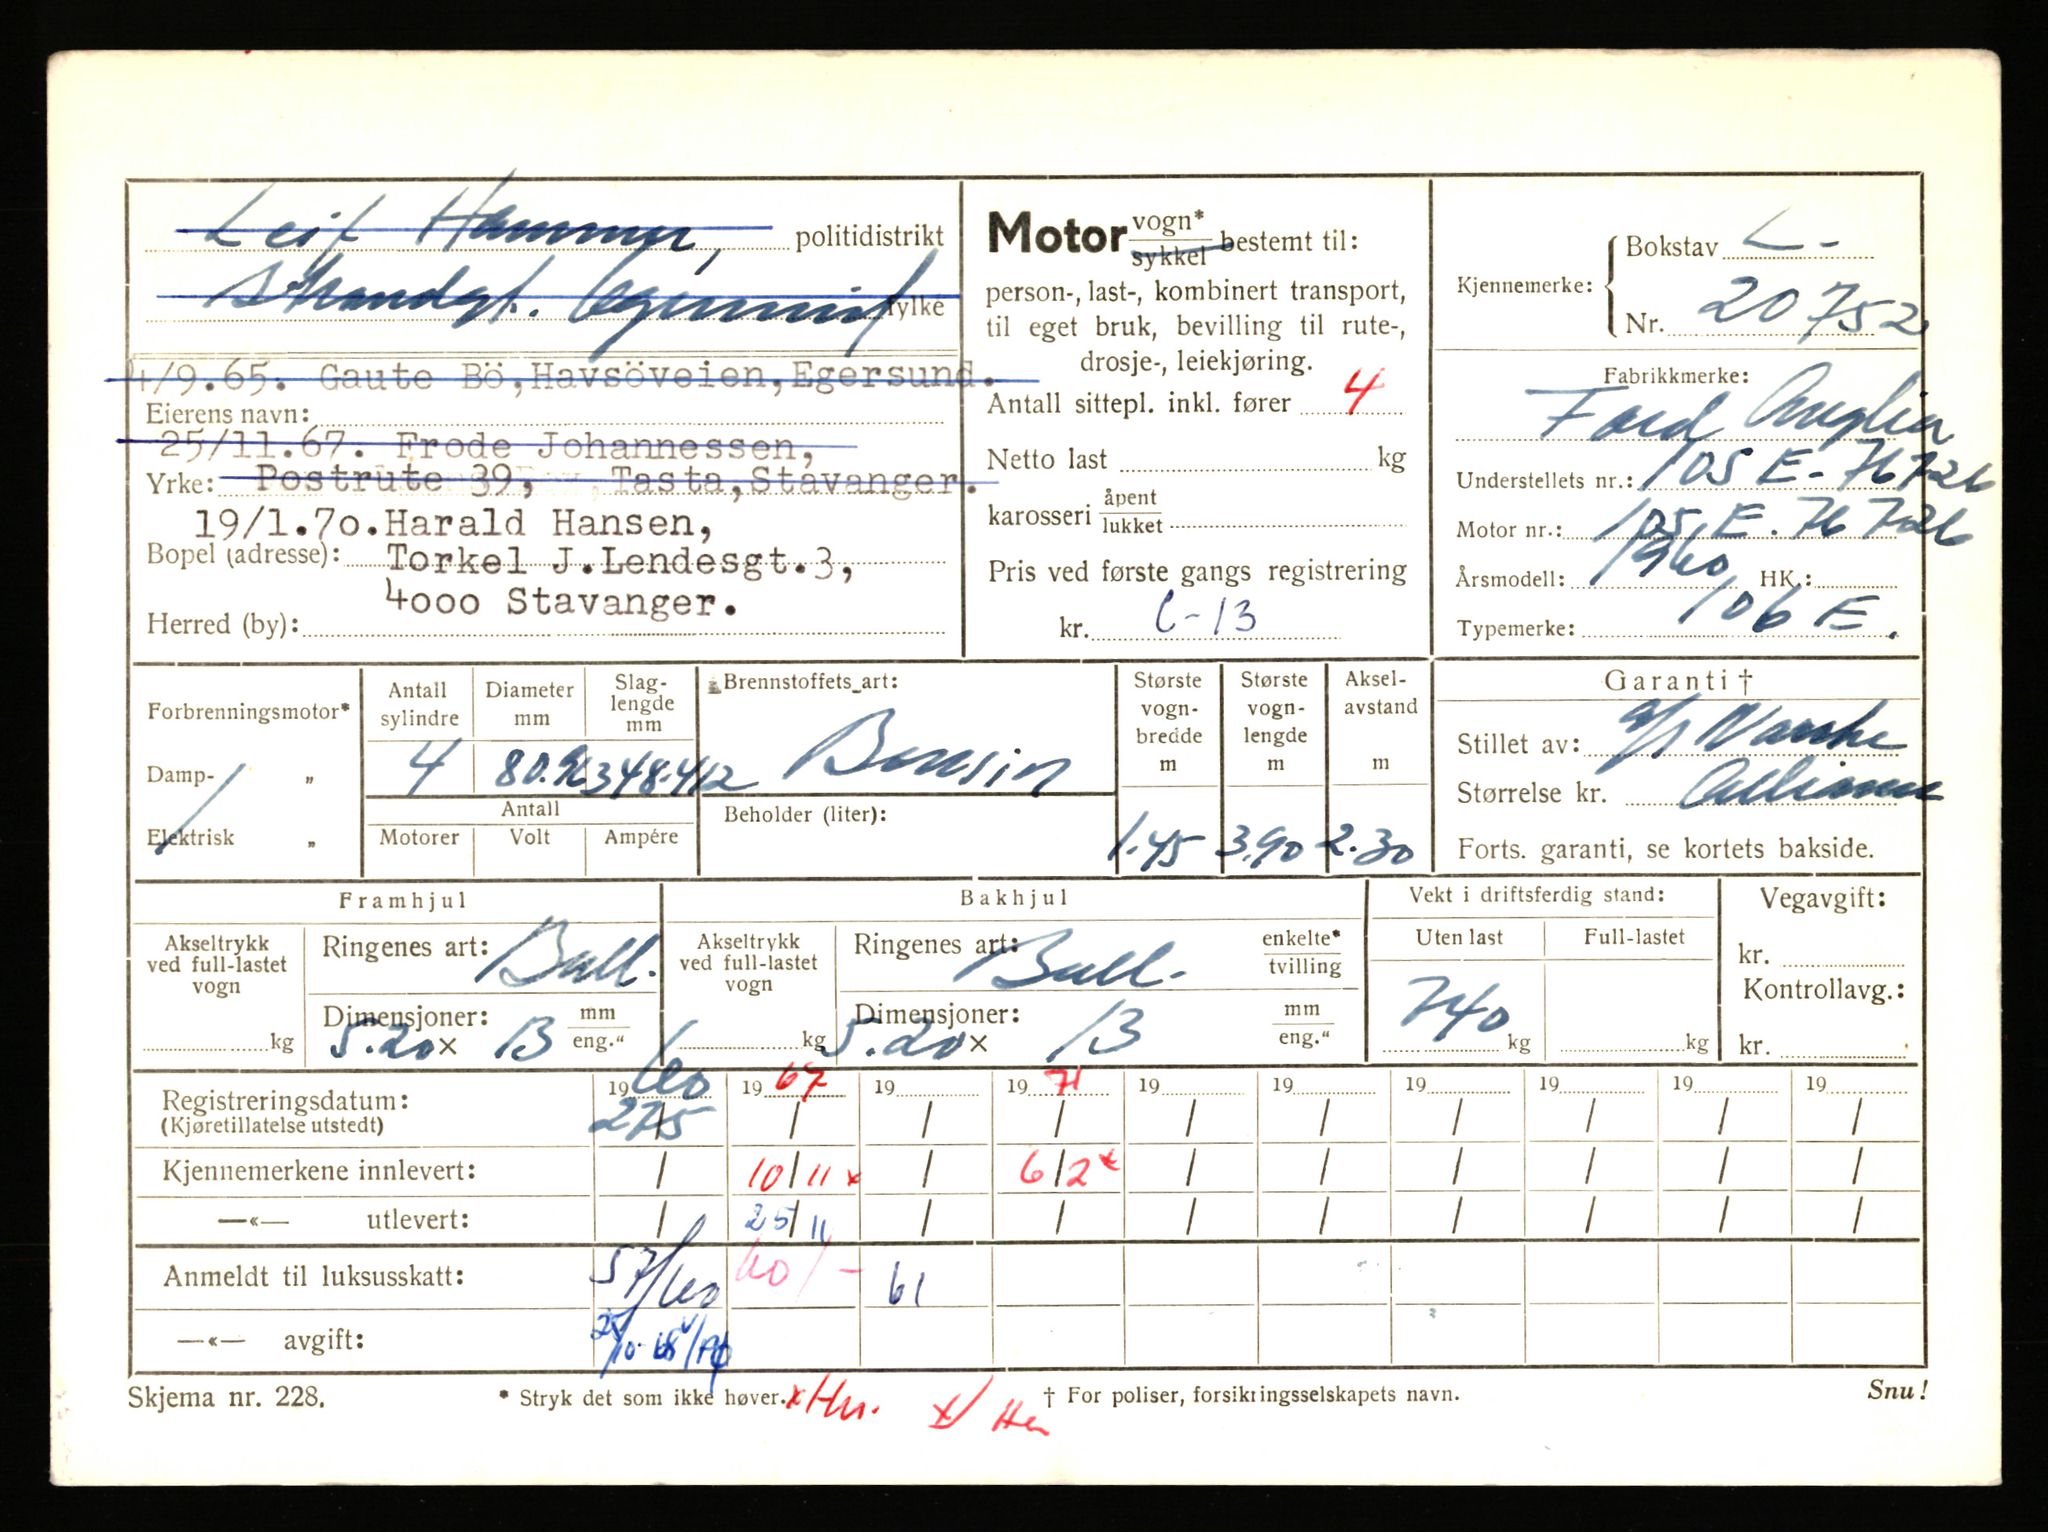 Leif Hammer, politidistrikt
Strandgt. Egersund fylke
4/9.65. Gaute Bö, Havsöveien, Egersund.
Eierens navn:
25/11.67. Frode Johannessen,
Yrke: Postrute 39, Tasta, Stavanger.
19/1.70. Harald Hansen,
Bopel (adresse): Torkel J. Lendesgt. 3,
4000 Stavanger.
Herred (by):
Motor vogn* / sykkel bestemt til:
person-, last-, kombinert transport,
til eget bruk, bevilling til rute-,
drosje-, leiekjøring.
Antall sittepl. inkl. fører 4
Netto last kg
karosseri åpent / lukket
Pris ved første gangs registrering
kr. C-13
Kjennemerke: Bokstav L-
Nr. 20752
Fabrikkmerke:
Ford Anglia
Understellets nr.: 105 E-76726
Motor nr.: 105 E. 76726
Årsmodell: 1960 HK.:
Typemerke: 106 E.
Forbrenningsmotor*
Damp- „
Elektrisk „
Antall sylindre 4
Diameter mm 80.963
Slag-lengde mm 48.412
Antall
Motorer Volt Ampére
Brennstoffets art:
Bensin
Beholder (liter):
Største vogn-bredde m 1.45
Største vogn-lengde m 3.90
Aksel-avstand m 2.30
Garanti †
Stillet av: A/S Norske
Størrelse kr. Alliance
Forts. garanti, se kortets bakside.
Framhjul
Akseltrykk ved full-lastet vogn kg
Ringenes art: Ball.
Dimensjoner: mm / eng."
5.20 x 13
Bakhjul
Akseltrykk ved full-lastet vogn kg
Ringenes art: Ball. enkelte* / tvilling
Dimensjoner: mm / eng."
5.20 x 13
Vekt i driftsferdig stand:
Uten last Full-lastet
740 kg kg
Vegavgift:
kr.
Kontrollavg.:
kr.
1960 1967 19 1971 19 19 19 19 19 19
Registreringsdatum: 27/5 / / / / / / / / /
(Kjøretillatelse utstedt)
Kjennemerkene innlevert: / 10/11 x / 6/2 x / / / / / /
—«— utlevert: / 25/11 / / / / / / / /
Anmeldt til luksusskatt: 57/60 60/- 61
—«— avgift:
Skjema nr. 228.
* Stryk det som ikke høver.
† For poliser, forsikringsselskapets navn.
Snu!